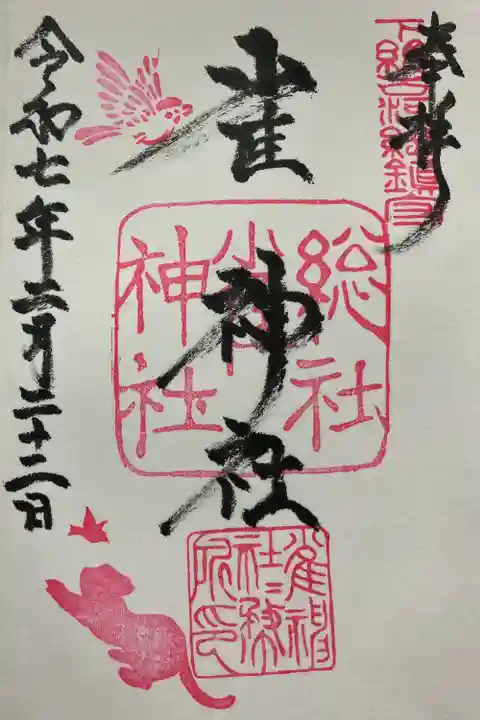 奉拝
下総古河総鎮守
雀神社
総社
雀
神社
雀神
社々務
所印
令和七年二月二十二日